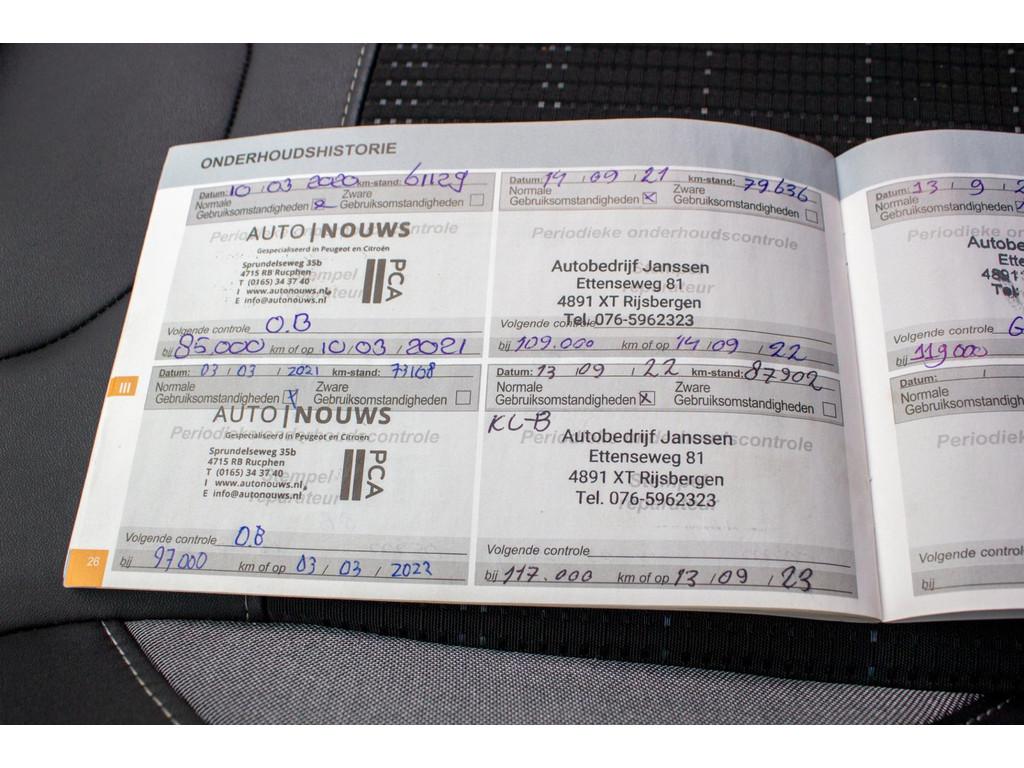 ONDERHOUDSHISTORIE
Datum: 10 / 03 2020 km-stand: 61129
Normale Zware
Gebruiksomstandigheden Gebruiksomstandigheden
Periodieke onderhoudscontrole
AUTO | NOUWS
Gespecialiseerd in Peugeot en Citroën
Sprundelseweg 35b
4715 RB Rucphen
T (0165) 34 37 40
I www.autonouws.nl
E info@autonouws.nl
PCA
Stempel
reparateur
Volgende controle O.B
bij 85.000 km of op 10 / 03 / 2021
III
Datum: 03 / 03 / 2021 km-stand:
Normale Zware
Gebruiksomstandigheden Gebruiksomstandigheden
Periodieke onderhoudscontrole
AUTO | NOUWS
Gespecialiseerd in Peugeot en Citroën
Sprundelseweg 35b
4715 RB Rucphen
T (0165) 34 37 40
I www.autonouws.nl
E info@autonouws.nl
PCA
Stempel
reparateur
Volgende controle O.B
bij 97000 km of op 03 / 03 / 2022
26
Datum: 14 / 09 / 21 km-stand: 79.636
Normale Zware
Gebruiksomstandigheden Gebruiksomstandigheden
Periodieke onderhoudscontrole
Autobedrijf Janssen
Ettenseweg 81
4891 XT Rijsbergen
Tel. 076-5962323
Volgende controle
bij 109.000 km of op 14 / 09 / 22
Datum: 13 / 09 / 22 km-stand: 87902
Normale Zware
Gebruiksomstandigheden Gebruiksomstandigheden
KL-B
Periodieke onderhoudscontrole
Autobedrijf Janssen
Ettenseweg 81
4891 XT Rijsbergen
Tel. 076-5962323
Stempel
reparateur
Volgende controle
bij 117.000 km of op 13 / 09 / 23
Datum: 13 / 9 / 2
Normale
Gebruiksomstandigheden
Periodieke onderh
Autobe
Ette
4891
Tel.
Volgende controle G
bij 119000
Datum: /
Normale
Gebruiksomstandigh
Periodiek
Volgende control
bij